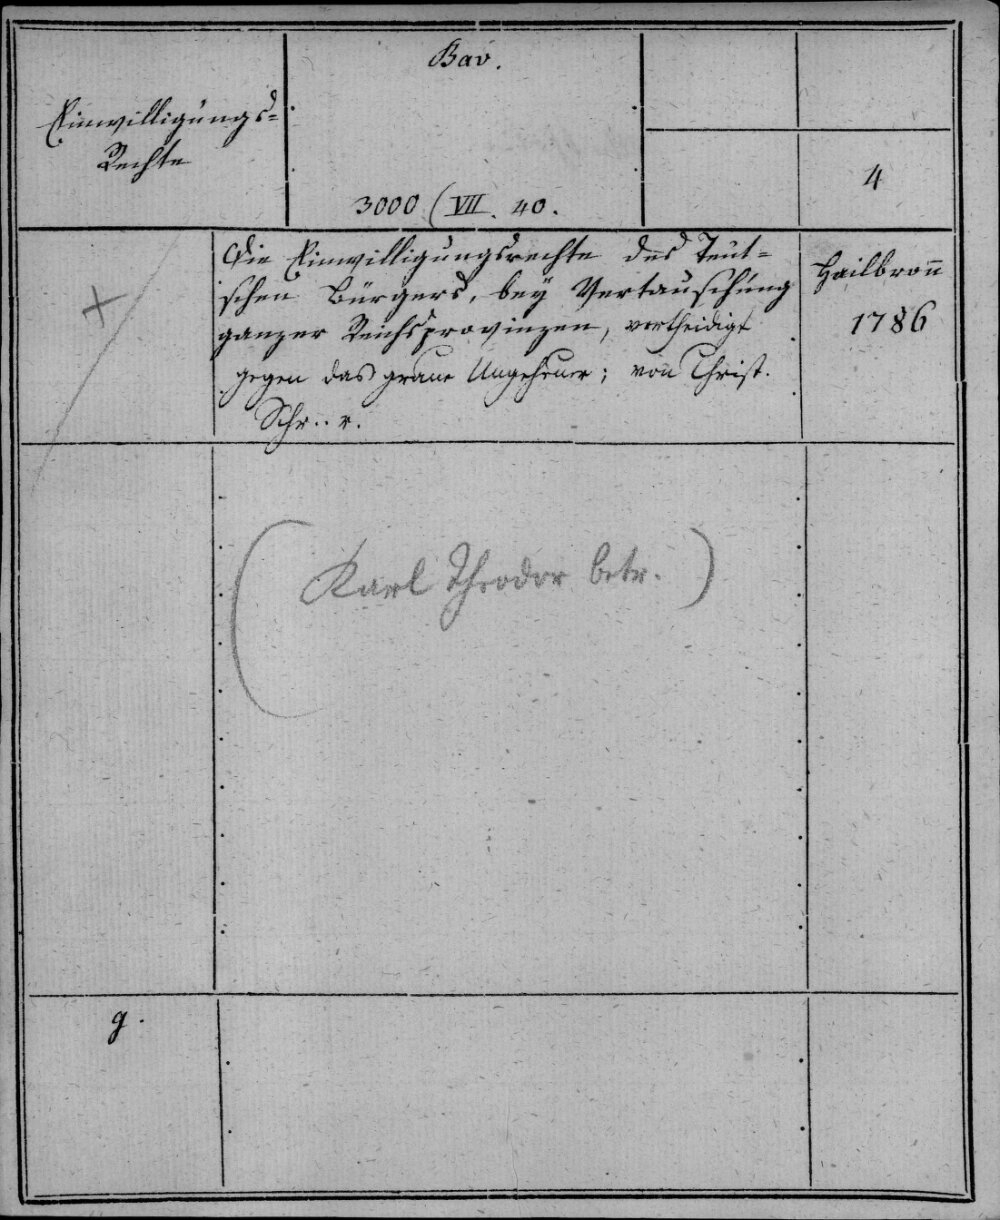 Bav.
Einwilligungs-
Rechte
4
3000 (VII. 40.
Die Einwilligungsrechte des Teut-
schen Bürgers, bey Vertauschung
ganzer Reichsprovinzen, vertheidigt
gegen das graue Ungeheuer; von Christ.
Schr..r.
Heilbronn
1786
+
(Karl Theodor betr.)
g.